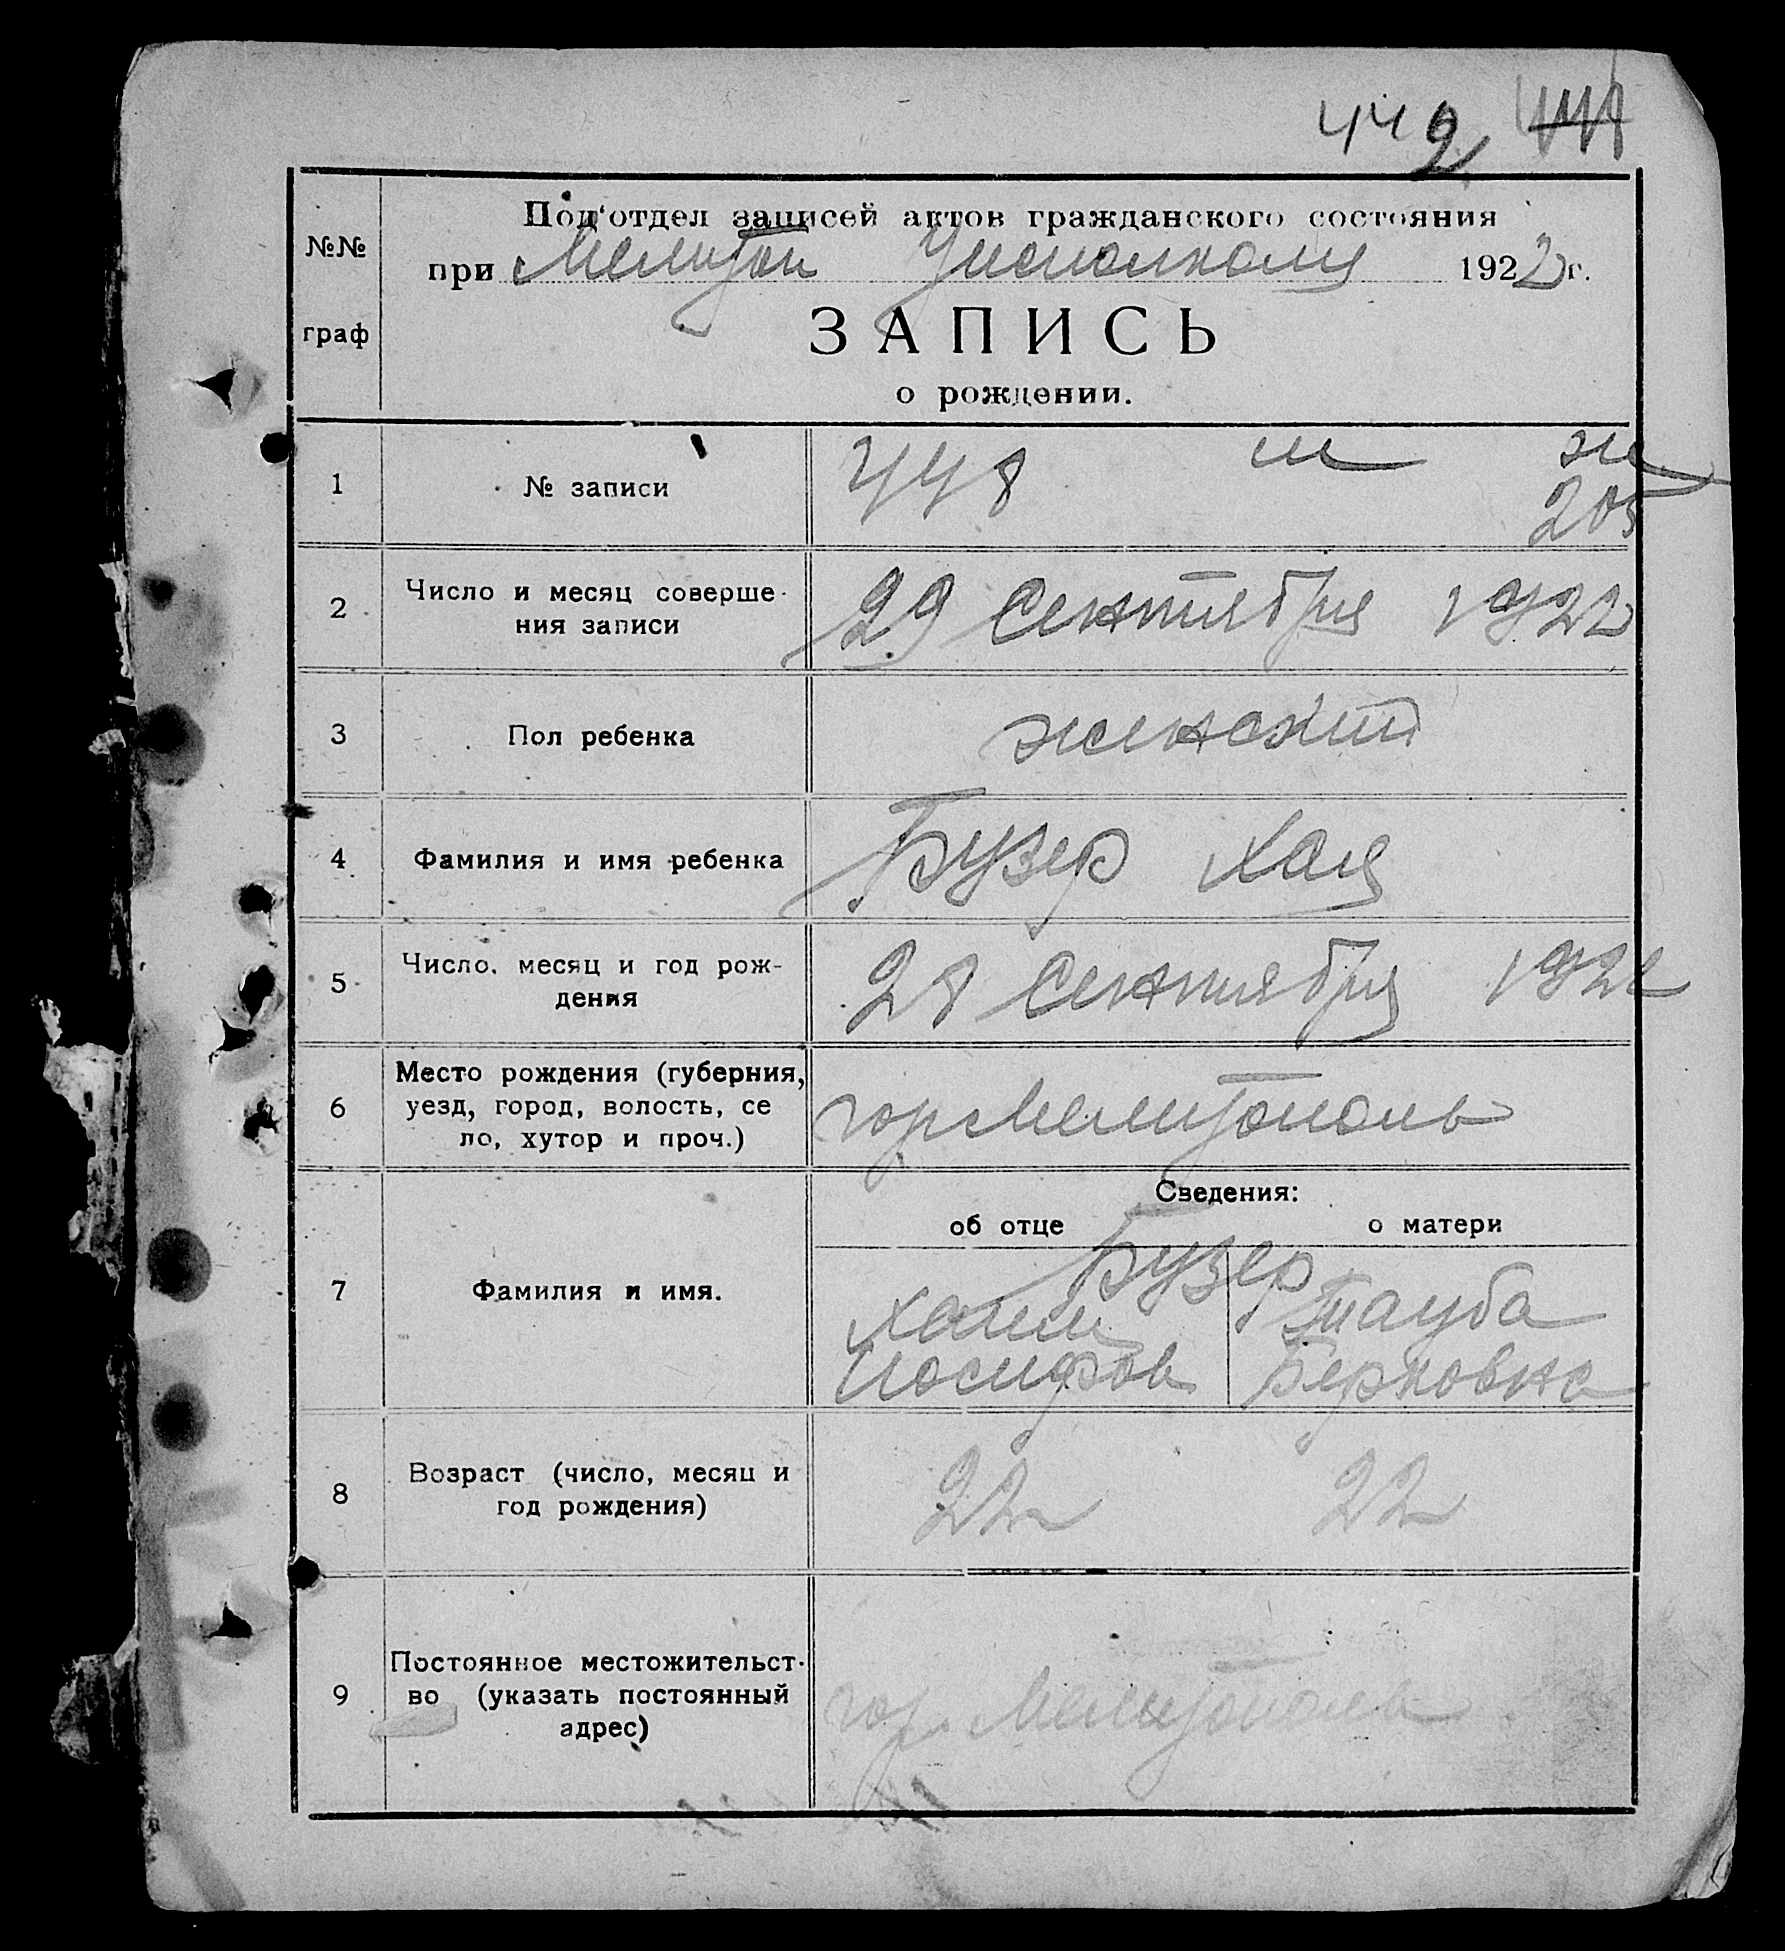 442
№№
граф
Под'отдел записей актов гражданского состояния
при Мелитоп Уисполкома 1922 г.
ЗАПИСЬ
о рождении.
1 № записи 448 м ж
205
2 Число и месяц соверше-
ния записи 29 Сентября 1922
3 Пол ребенка женский
4 Фамилия и имя ребенка Бузер Хая
5 Число, месяц и год рож-
дения 28 Сентября 1922
6 Место рождения (губерния,
уезд, город, волость, се
ло, хутор и проч.) гор Мелитополь
Сведения:
об отце о матери
7 Фамилия и имя. Бузер
Хаим Тауба
Иосифов Берковна
8 Возраст (число, месяц и
год рождения) 22 22
9 Постоянное местожительст-
во (указать постоянный
адрес) гор. Мелитополь